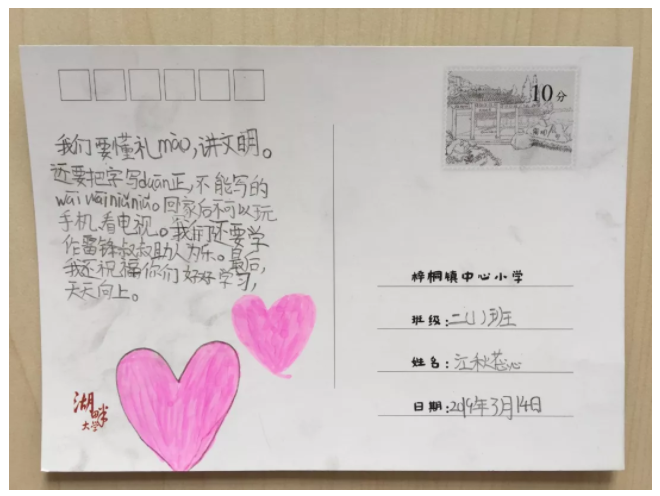 我们要懂礼mào,讲文明。
还要把字写duān正,不能写的
wāi wāi niǔ niǔ。回家后不可以玩
手机、看电视。我们还要学
习雷锋叔叔助人为乐。最后,
我还祝福你们好好学习,
天天向上。
湖畔
大学
10分
梓桐镇中心小学
班级:二(1)班
姓名:江秋蕊心
日期:2019年3月14日